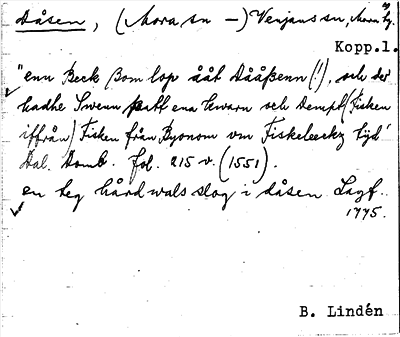 Dåsen, (Mora sn –) Venjans sn, Mora tg.
Kopp.l.
"enn Beck som lop ååt Dååssenn (!), och der
hadhe Swenn satt ena kwarn och dempt (Fisken
iffrån) Fisken från Byonom vm Fiskeleeckz tijd"
Dal. Domb. fol. 215 v. (1551).
en teg hårdwals slog i dåsen Lagf.
1775.
B. Lindén